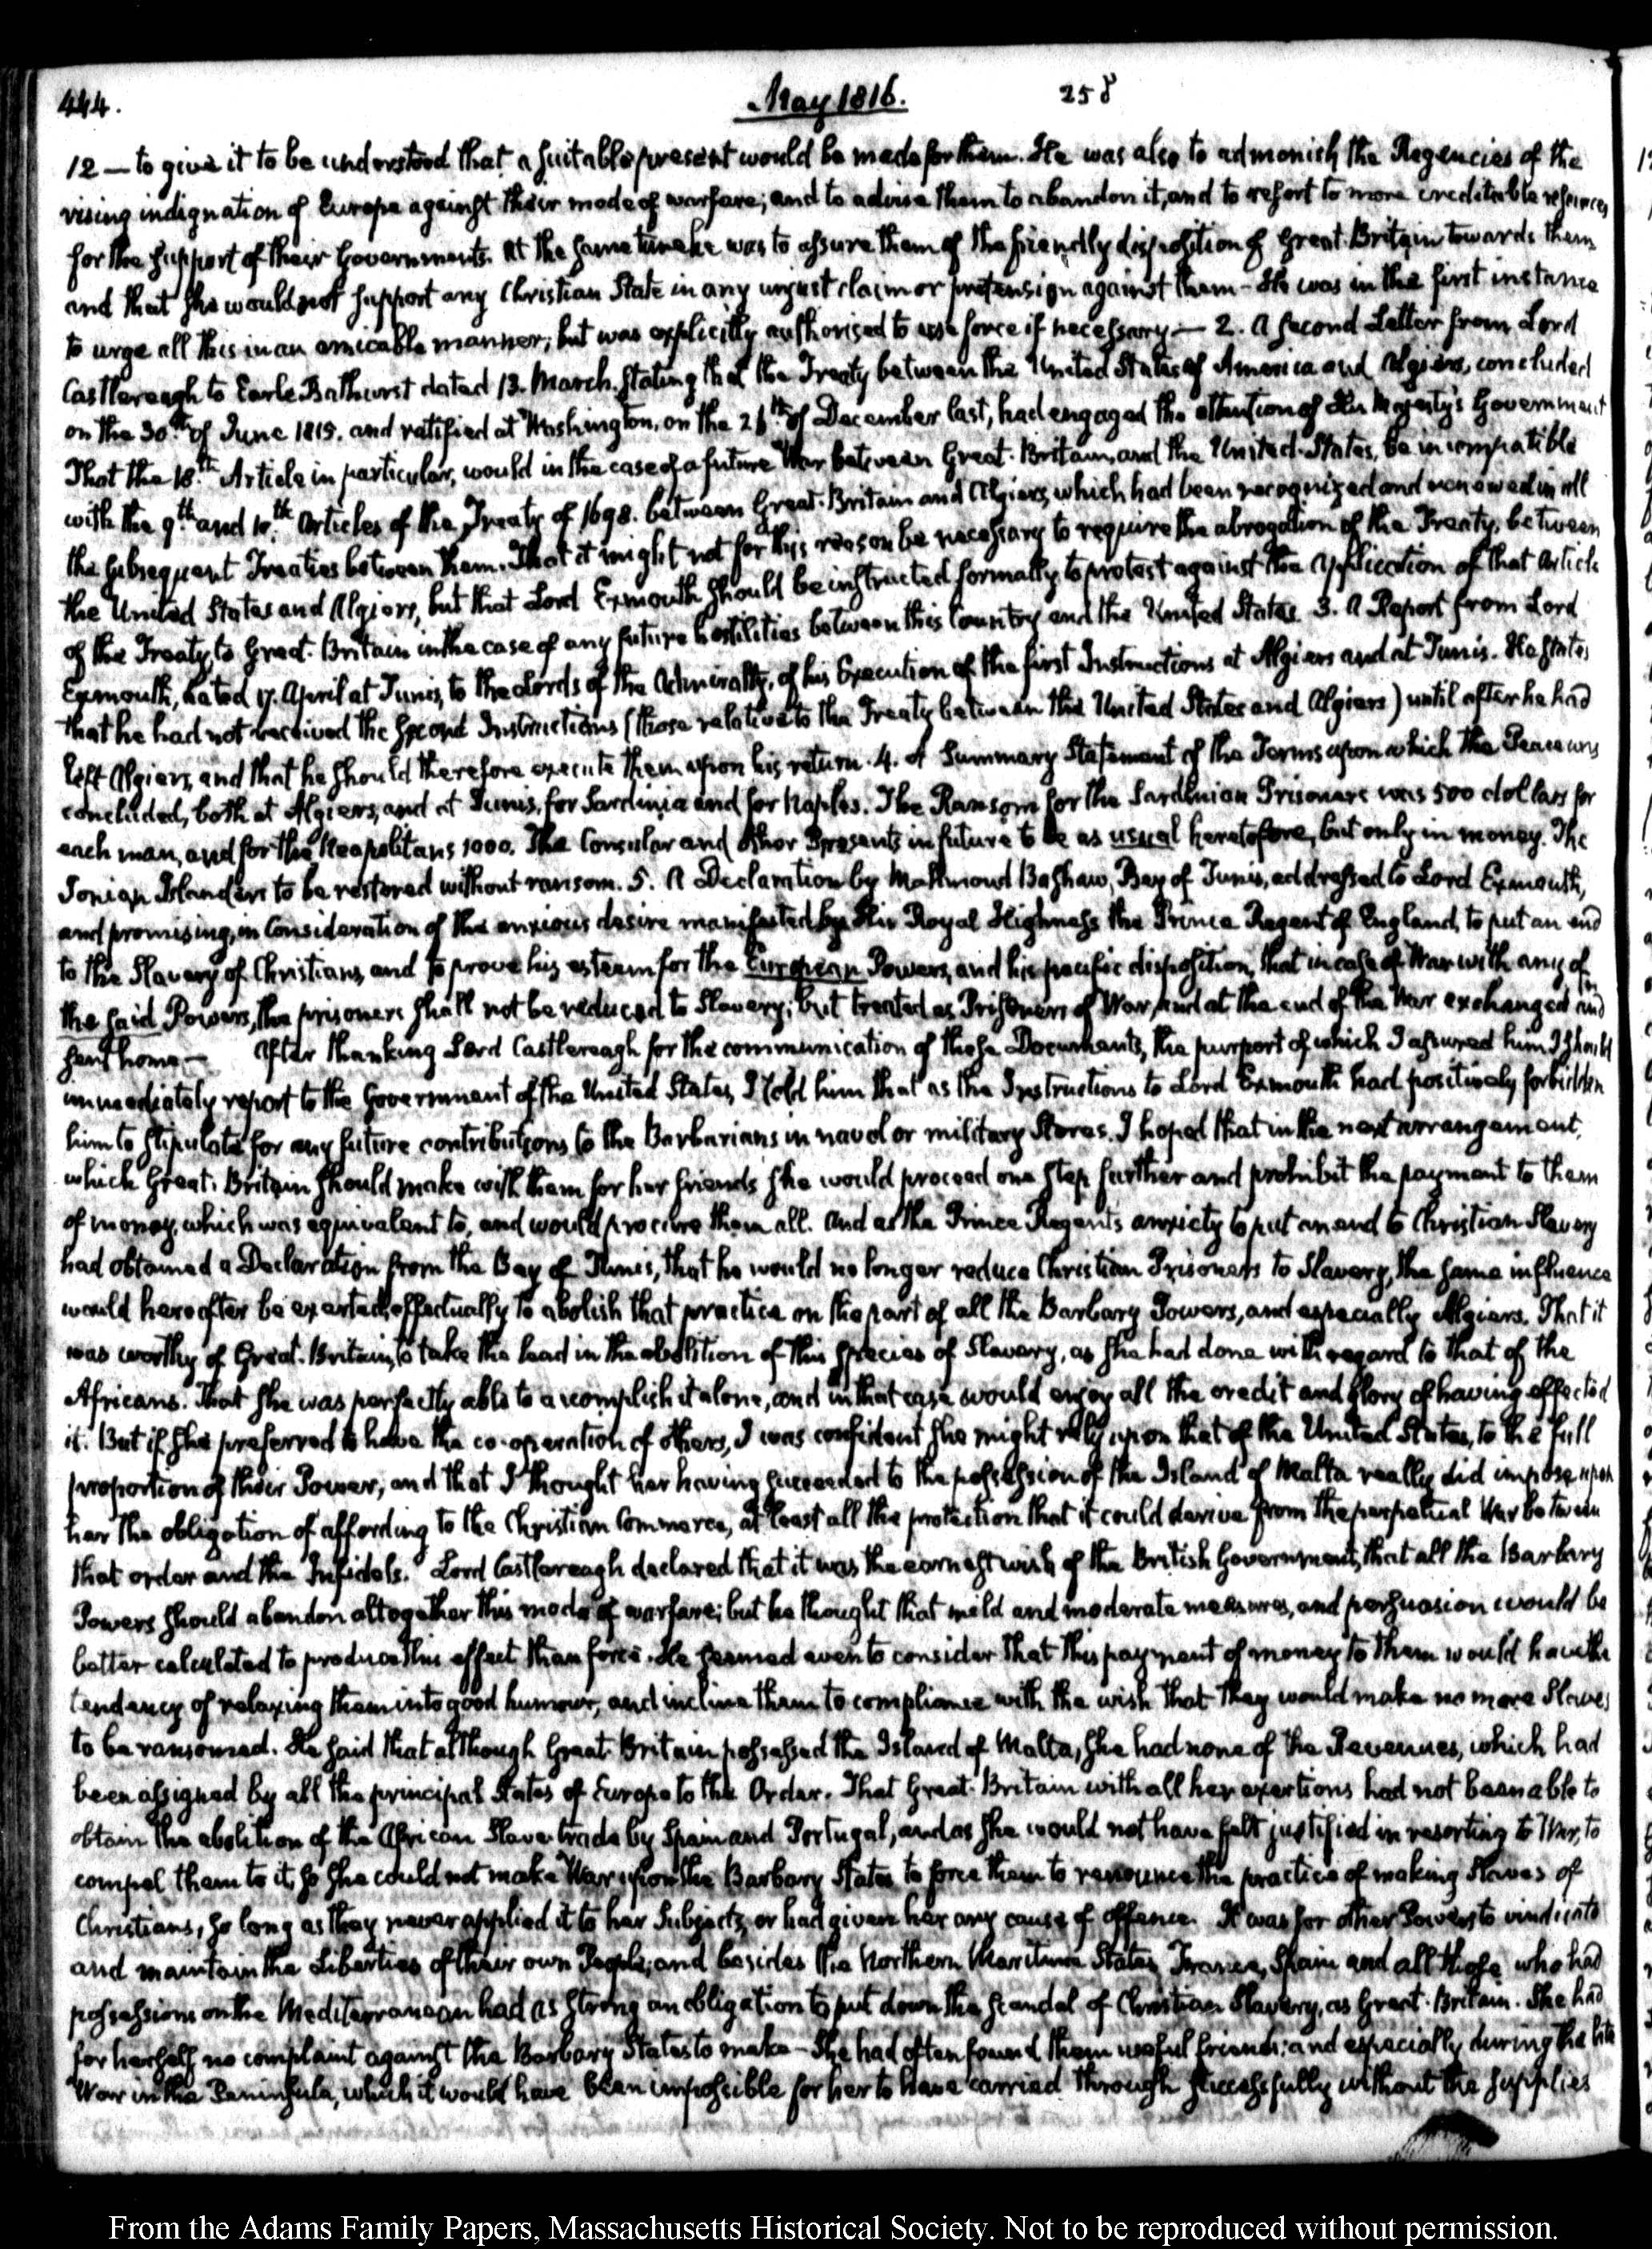 444.
May 1816.
258
12 — to give it to be understood that a suitable present would be made for them. He was also to admonish the Regencies of the
rising indignation of Europe against their mode of warfare; and to advise them to abandon it, and to resort to more creditable resources
for the support of their Governments. At the same time he was to assure them of the friendly disposition of Great-Britain towards them
and that she would not support any Christian State in any unjust claim or pretension against them — He was in the first instance
to urge all this in an amicable manner; but was explicitly authorised to use force if necessary — 2. A second Letter from Lord
Castlereagh to Earle Bathurst dated 13. March, stating that the Treaty between the United States of America and Algiers, concluded
on the 30th. of June 1815. and ratified at Washington, on the 26th. of December last, had engaged the attention of His Majesty's Government
That the 18.th Article in particular, would in the case of a future War between Great-Britain, and the United-States, be incompatible
with the 9th. and 10.th Articles of the Treaty of 1698. between Great-Britain and Algiers, which had been recognized and renewed in all
the subsequent Treaties between them. That it might not for this reason be necessary to require the abrogation of the Treaty, between
the United States and Algiers, but that Lord Exmouth should be instructed formally to protest against the application of that Article
of the Treaty, to Great-Britain in the case of any future hostilities between this Country and the United States. 3. A Report from Lord
Exmouth, dated 17. April at Tunis, to the Lords of the Admiralty, of his Execution of the first Instructions at Algiers and at Tunis. He states
that he had not received the second Instructions (those relative to the Treaty between the United States and Algiers) until after he had
left Algiers, and that he should therefore execute them upon his return. 4. A Summary Statement of the Terms upon which the Peace was
concluded, both at Algiers, and at Tunis, for Sardinia and for Naples. The Ransom for the Sardinian Prisoners was 500 dollars for
each man, and for the Neapolitans 1000. The Consular and other Presents in future to be as usual heretofore, but only in money. The
Ionian Islanders to be restored without ransom. 5. A Declaration by Mahmoud Bashaw, Bey of Tunis, addressed to Lord Exmouth,
and promising, in Consideration of the anxious desire manifested by His Royal Highness the Prince Regent of England, to put an end
to the Slavery of Christians, and to prove his esteem for the European Powers, and his pacific disposition, that in case of War with any of
the said Powers, the prisoners shall not be reduced to Slavery; but treated as Prisoners of War, and at the end of the War exchanged and
sent home — After thanking Lord Castlereagh for the communication of these Documents, the purport of which I assured him I should
immediately report to the Government of the United States, I told him that as the Instructions to Lord Exmouth had positively forbidden
him to stipulate for any future contributions to the Barbarians in naval or military Stores. I hoped that in the next arrangement,
which Great-Britain should make with them for her friends she would proceed one step further and prohibit the payment to them
of money, which was equivalent to, and would procure them all. And as the Prince Regent's anxiety to put an end to Christian Slavery
had obtained a Declaration from the Bey of Tunis, that he would no longer reduce Christian Prisoners to Slavery, the same influence
would hereafter be exerted, effectually to abolish that practice on the part of all the Barbary Powers, and especially Algiers. That it
was worthy of Great-Britain, to take the lead in the abolition of this species of Slavery, as she had done with regard to that of the
Africans. That she was perfectly able to accomplish it alone, and in that case would enjoy all the credit and glory of having effected
it. But if she preferred to have the co-operation of others, I was confident she might rely upon that of the United States, to the full
proportion of their Power; and that I thought her having succeeded to the possession of the Island of Malta really did impose upon
her the obligation of affording to the Christian Commerce, at least all the protection that it could derive from the perpetual War between
that order and the Infidels. Lord Castlereagh declared that it was the earnest wish of the British Government, that all the Barbary
Powers should abandon altogether this mode of warfare; but he thought that mild and moderate measures, and persuasion would be
better calculated to produce this effect than force. He seemed even to consider that this payment of money to them would have the
tendency of relaxing them into good humour, and incline them to compliance with the wish that they would make no more Slaves
to be ransomed. He said that although Great-Britain possessed the Island of Malta, she had none of the Revenues, which had
been assigned by all the principal States of Europe to the Order. That Great-Britain with all her exertions had not been able to
obtain the abolition of the African Slave trade by Spain and Portugal, and as she would not have felt justified in resorting to War, to
compel them to it, so she could not make War upon the Barbary States to force them to renounce the practice of making Slaves of
Christians, so long as they never applied it to her Subjects, or had given her any cause of offence. It was for other Powers to vindicate
and maintain the Liberties of their own People; and besides the Northern Maritime States, France, Spain and all those who had
possessions on the Mediterranean had as strong an obligation to put down the scandal of Christian Slavery, as Great-Britain. She had
for herself no complaint against the Barbary States to make — She had often found them useful friends; and especially during the late
War in the Peninsula, which it would have been impossible for her to have carried through successfully without the supplies
From the Adams Family Papers, Massachusetts Historical Society. Not to be reproduced without permission.